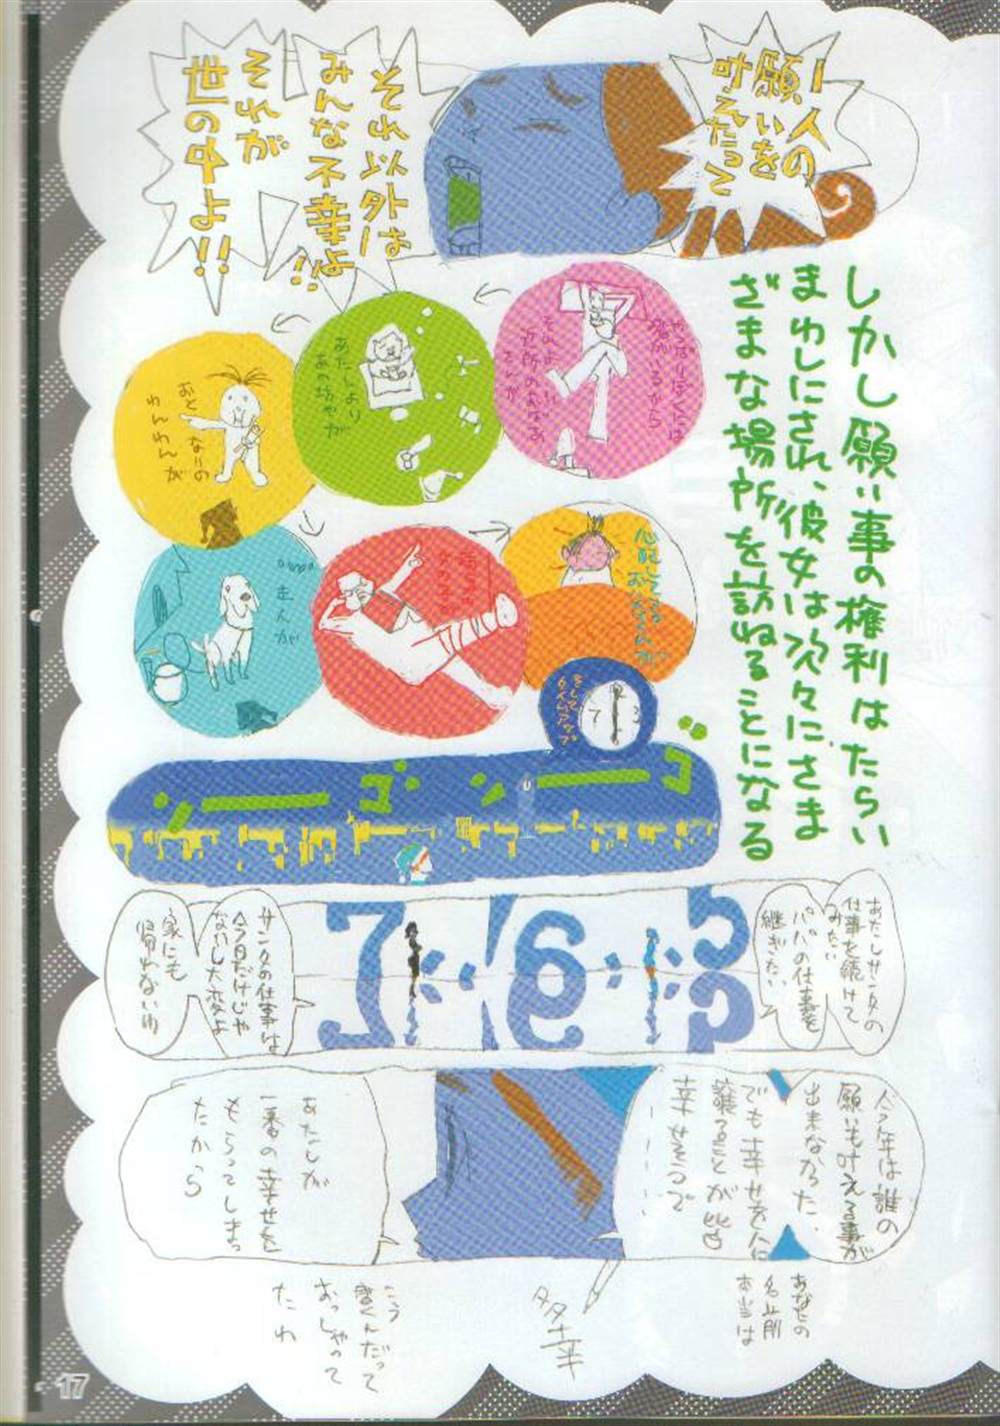 一人の
願いを
叶えたって
それ以外は
みんな不幸よ!!
それが
世の中よ!!
しかし願い事の権利はたらい
まわしにされ、彼女は次々にさま
ざまな場所を訪ねることになる
やっぱりぼくには
それより
近所のおばあ
さんが
あたしより
あの坊やが
おとなりの
わんわんが
まんが
心配してる
おじいさんが
そして
タイムアップ
ゴーン
ゴーン
5
6
7
あたしサンタの
仕事を続けて
みたい
パパの仕事を
継ぎたい
サンタの仕事は
今日だけじゃ
ないし大変よ
家にも
帰れないわ
今年は誰の
願いも叶える事が
出来なかった、
でも幸せを人に
譲ることが皆
幸せそうで
あたしが
一番の幸せを
もらってしまっ
たから
あなたの
名前
本当は
多幸
こう
書くんだって
おっしゃって
たわ
17